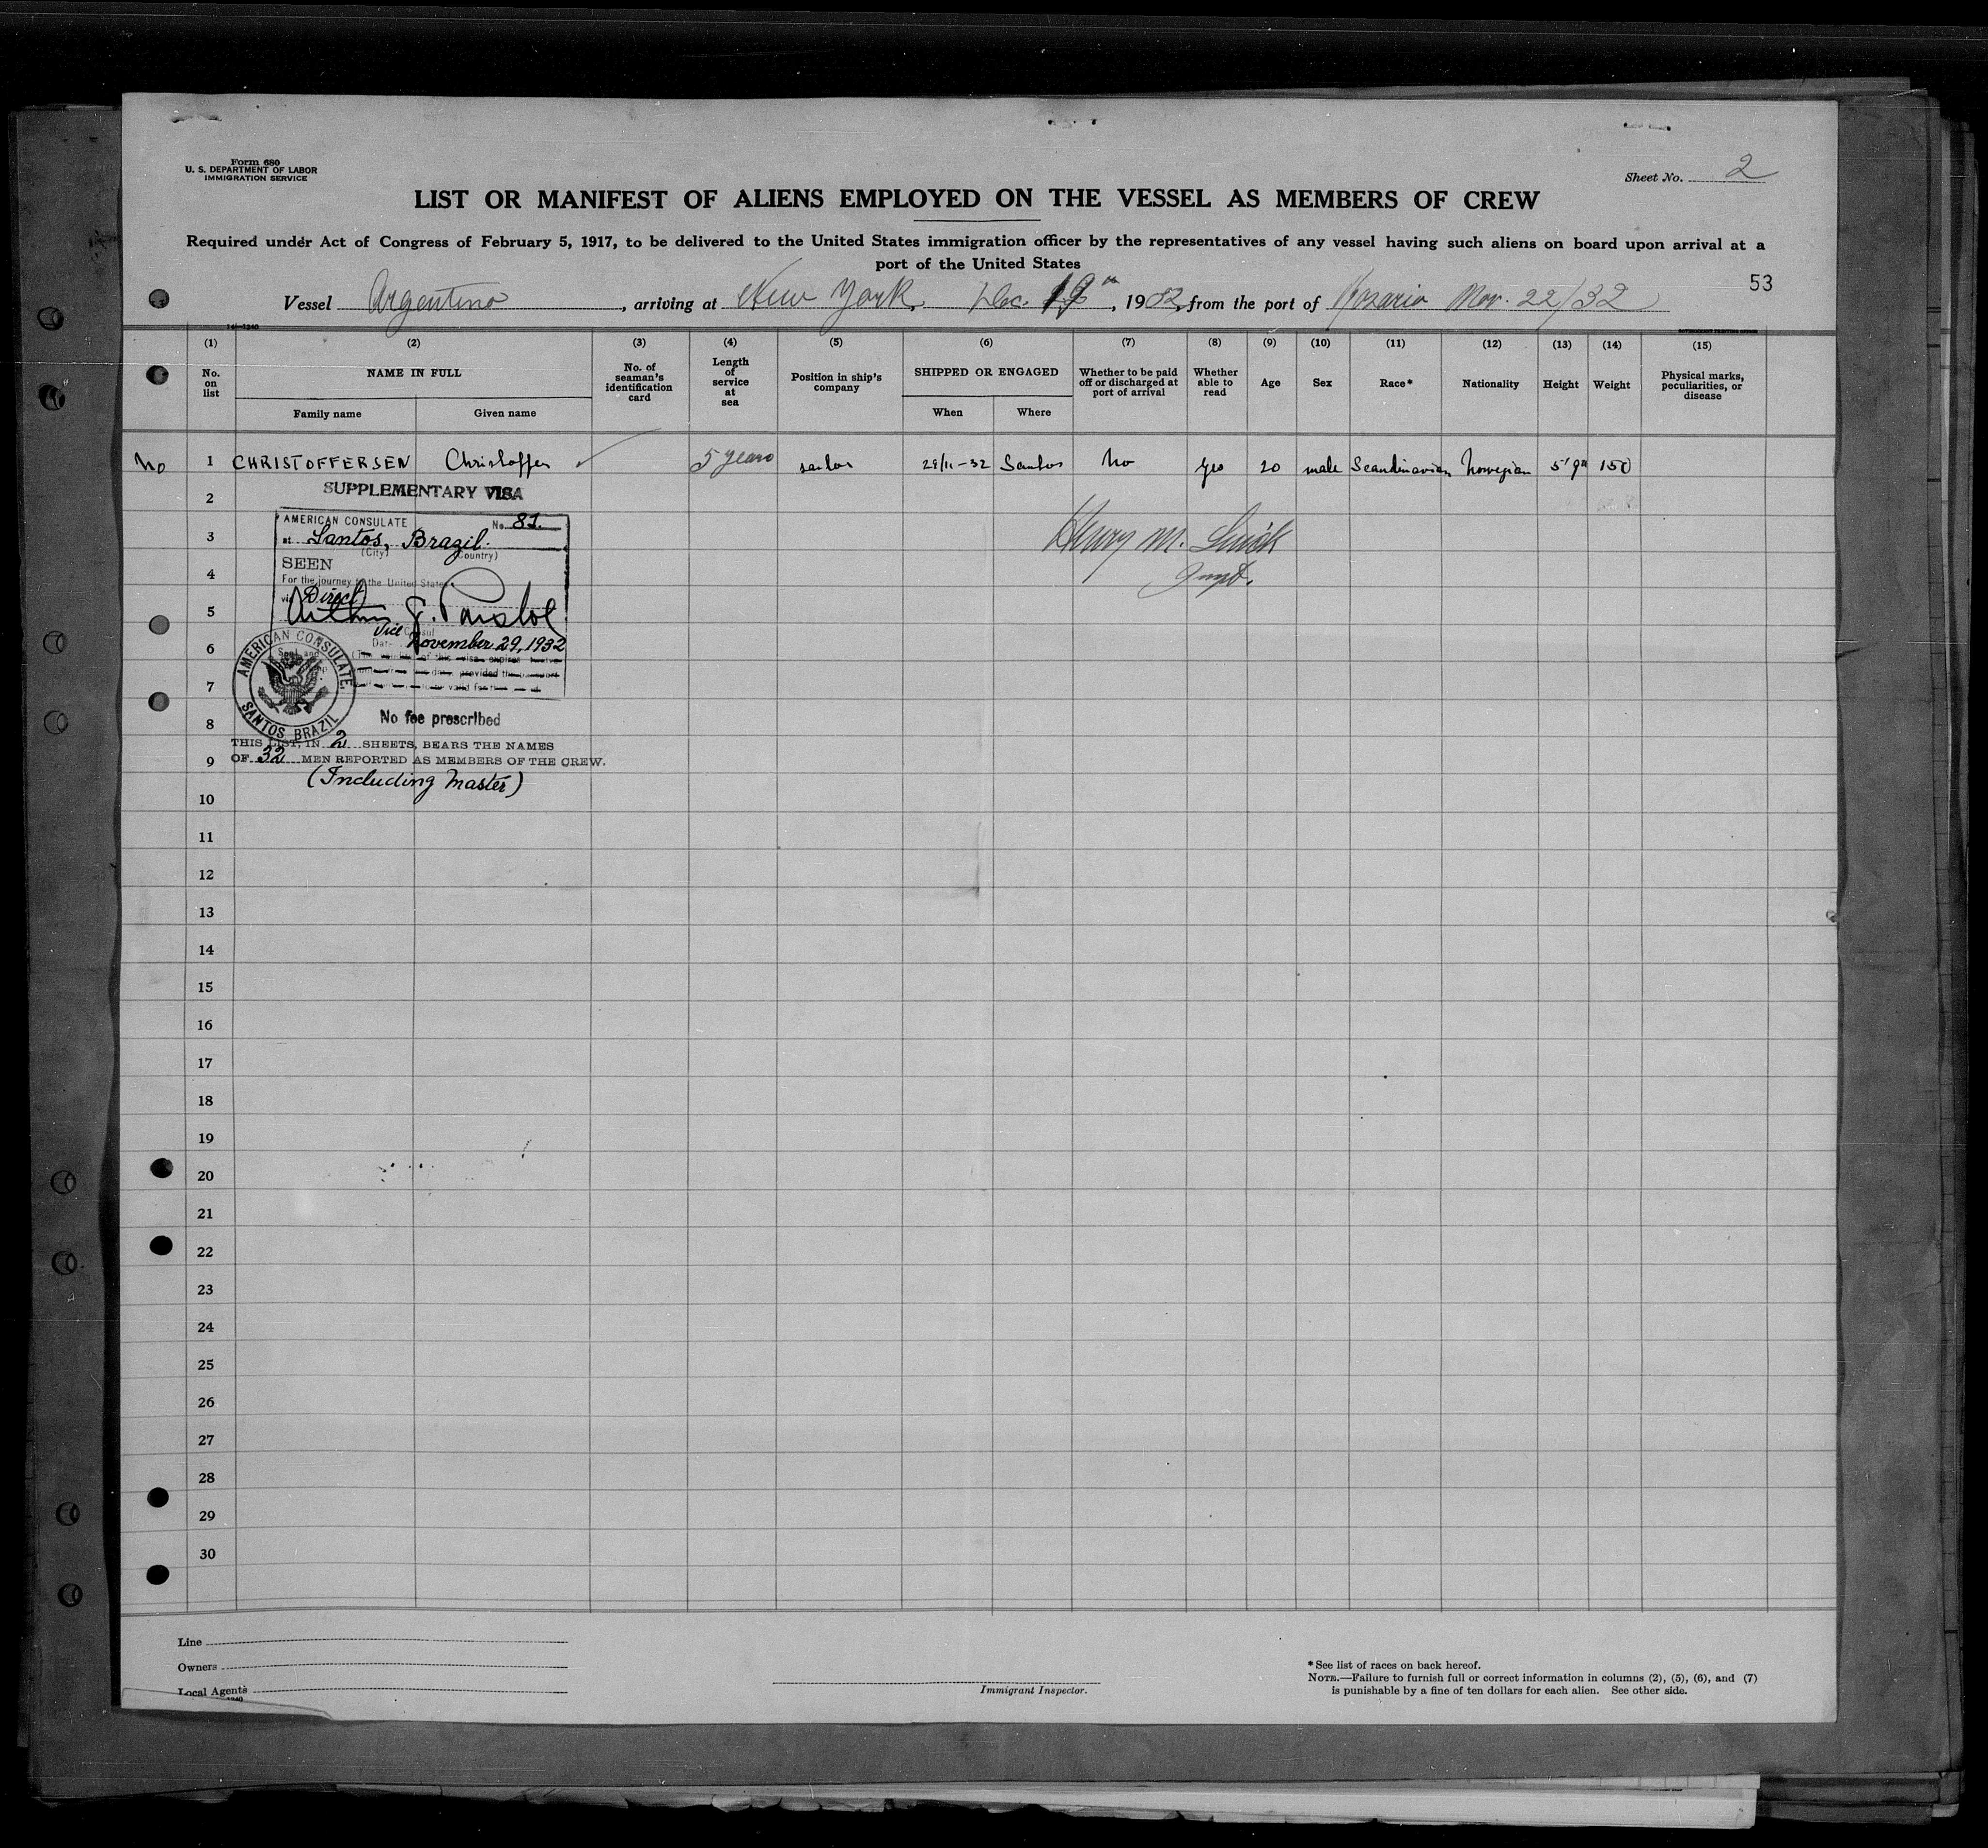 Form 680
U. S. DEPARTMENT OF LABOR
IMMIGRATION SERVICE
Sheet No. 2
LIST OR MANIFEST OF ALIENS EMPLOYED ON THE VESSEL AS MEMBERS OF CREW
Required under Act of Congress of February 5, 1917, to be delivered to the United States immigration officer by the representatives of any vessel having such aliens on board upon arrival at a
port of the United States
53
Vessel Argentino, arriving at New York, Dec. 19th, 1932, from the port of Rosario Nov. 22/32
(1) (2) (3) (4) (5) (6) (7) (8) (9) (10) (11) (12) (13) (14) (15)
No. on list
NAME IN FULL
Family name Given name
No. of seaman's identification card
Length of service at sea
Position in ship's company
SHIPPED OR ENGAGED
When Where
Whether to be paid off or discharged at port of arrival
Whether able to read
Age
Sex
Race*
Nationality
Height
Weight
Physical marks, peculiarities, or disease
No 1 CHRISTOFFERSEN Christoffer 5 years sailor 29/11-32 Santos No yes 20 male Scandinavian Norwegian 5'9" 150
SUPPLEMENTARY VISA
2
AMERICAN CONSULATE No. 81.
3
at Santos, Brazil.
(City) (Country)
Henry M.
SEEN
4
For the journey to the United States
via Direct
Arthur J.
5
Vice Consul
Date November 29, 1932
6
AMERICAN CONSULATE.
SANTOS BRAZIL
7
No fee prescribed
8
THIS LIST, IN 2 SHEETS, BEARS THE NAMES
9
OF 32 MEN REPORTED AS MEMBERS OF THE CREW.
(Including Master)
10
11
12
13
14
15
16
17
18
19
20
21
22
23
24
25
26
27
28
29
30
Line
Owners
Local Agents
Immigrant Inspector.
*See list of races on back hereof.
NOTE.—Failure to furnish full or correct information in columns (2), (5), (6), and (7)
is punishable by a fine of ten dollars for each alien. See other side.